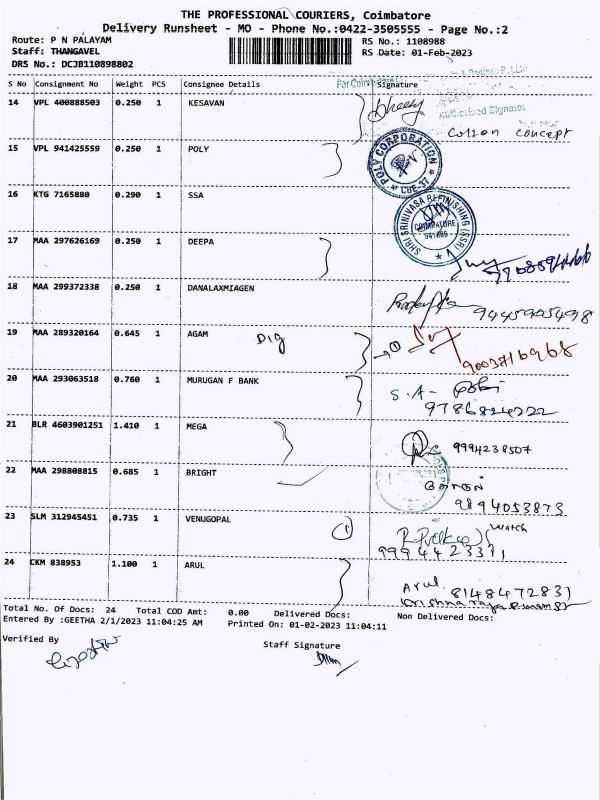 THE PROFESSIONAL COURIERS, Coimbatore
Delivery Runsheet - MO - Phone No.:0422-3505555 - Page No.:2
Route: P N PALAYAM RS No.: 1108988
Staff: THANGAVEL RS Date: 01-Feb-2023
DRS No.: DCJB110898802
S No Consignment No Weight PCS Consignee Details Signature
For Coimbatore
Authorised Signator
14 VPL 400888503 0.250 1 KESAVAN
Cotton concept
15 VPL 941425559 0.250 1 POLY
POLY CORPORATION
* CBE-37 *
16 KTG 7165880 0.290 1 SSA
SHRI SRINIVASA REFINISHING (SSR)
COIMBATORE
641006
17 MAA 297626169 0.250 1 DEEPA
18 MAA 299372338 0.250 1 DANALAXMIAGEN
9445905498
19 MAA 289320164 0.645 1 AGAM Dig
9003716968
20 MAA 293063518 0.760 1 MURUGAN F BANK
S.A-
9786824222
21 BLR 4603901251 1.410 1 MEGA
9994238507
22 MAA 298808815 0.685 1 BRIGHT
9894053873
23 SLM 312945451 0.735 1 VENUGOPAL 1 Watch
9994423311
24 CKM 838953 1.100 1 ARUL
Arul 8148472831
Total No. Of Docs: 24 Total COD Amt: 0.00 Delivered Docs: Non Delivered Docs:
Entered By :GEETHA 2/1/2023 11:04:25 AM Printed On: 01-02-2023 11:04:11
Verified By Staff Signature